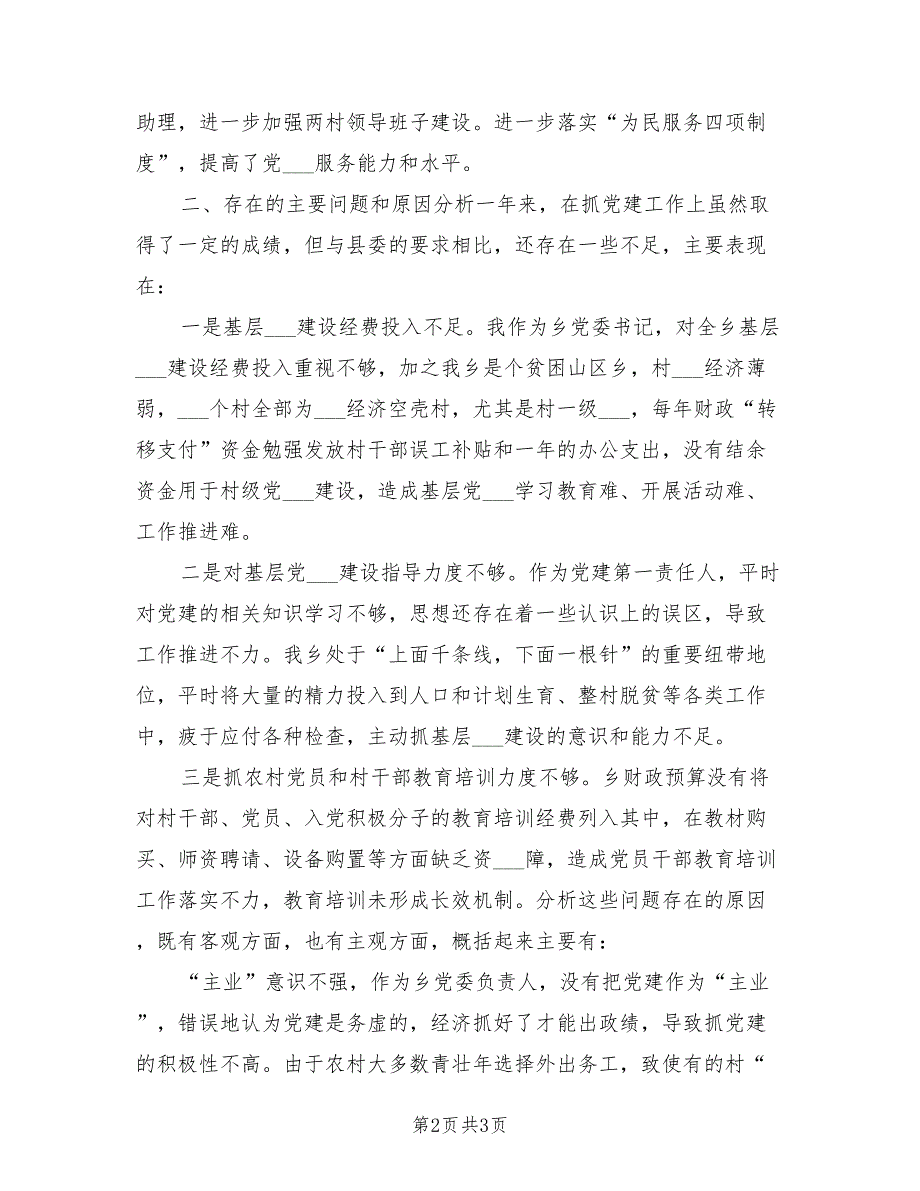 助理，进一步加强两村领导班子建设。进一步落实“为民服务四项制
度”，提高了党___服务能力和水平。
二、存在的主要问题和原因分析一年来，在抓党建工作上虽然取
得了一定的成绩，但与县委的要求相比，还存在一些不足，主要表现
在：
一是基层___建设经费投入不足。我作为乡党委书记，对全乡基层
___建设经费投入重视不够，加之我乡是个贫困山区乡，村___经济薄
弱，___个村全部为___经济空壳村，尤其是村一级___，每年财政“转
移支付”资金勉强发放村干部误工补贴和一年的办公支出，没有结余
资金用于村级党___建设，造成基层党___学习教育难、开展活动难、
工作推进难。
二是对基层党___建设指导力度不够。作为党建第一责任人，平时
对党建的相关知识学习不够，思想还存在着一些认识上的误区，导致
工作推进不力。我乡处于“上面千条线，下面一根针”的重要纽带地
位，平时将大量的精力投入到人口和计划生育、整村脱贫等各类工作
中，疲于应付各种检查，主动抓基层___建设的意识和能力不足。
三是抓农村党员和村干部教育培训力度不够。乡财政预算没有将
对村干部、党员、入党积极分子的教育培训经费列入其中，在教材购
买、师资聘请、设备购置等方面缺乏资___障，造成党员干部教育培训
工作落实不力，教育培训未形成长效机制。分析这些问题存在的原因
，既有客观方面，也有主观方面，概括起来主要有：
“主业”意识不强，作为乡党委负责人，没有把党建作为“主业
”，错误地认为党建是务虚的，经济抓好了才能出政绩，导致抓党建
的积极性不高。由于农村大多数青壮年选择外出务工，致使有的村“
第2页共3页